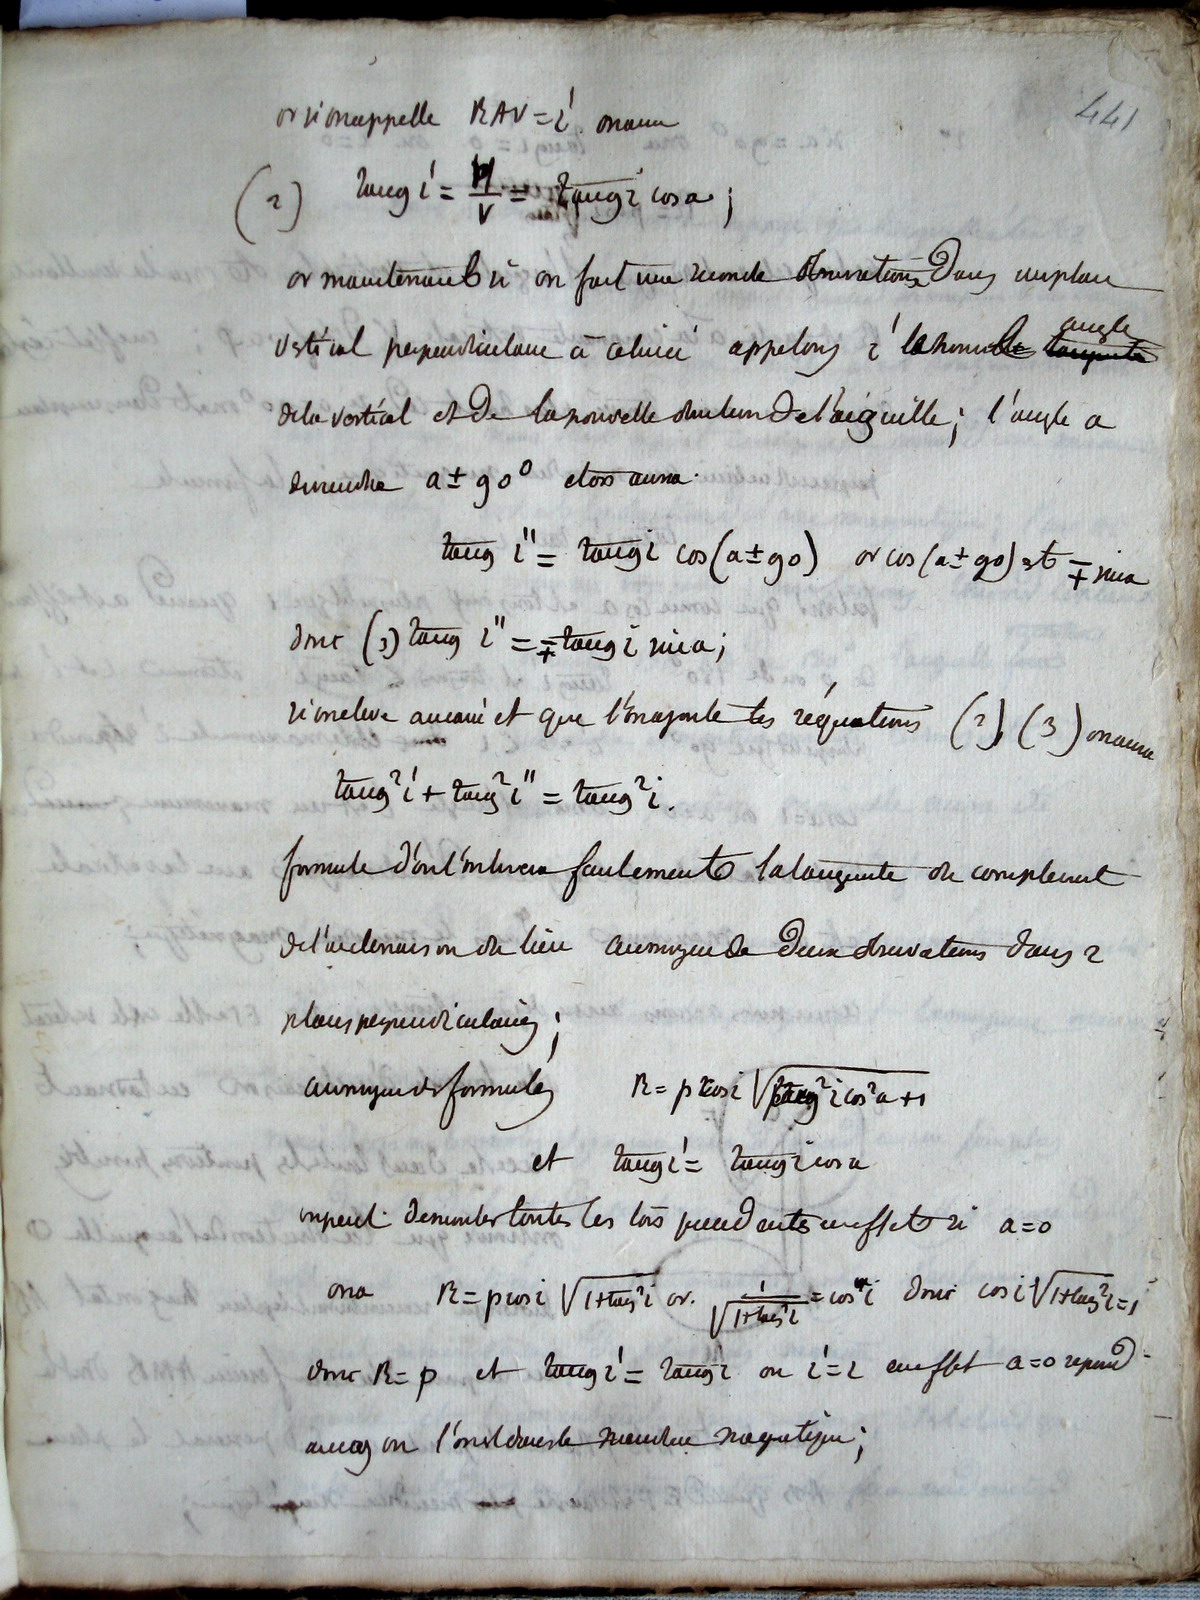 441
or si on appelle RAV = i' on aura
(2) tang i' = H/V = tang i cos a ;
or maintenant si on fait une seconde observation Dans un plan
vertical perpendiculaire à celui ci appelons i' angle
de la vertical et De la nouvelle direction De l'aiguille ; l'angle a
deviendra a ± 90° et on aura
tang i'' = tang i cos (a ± 90) or cos (a ± 90) est ∓ sin a
donc (3) tang i'' = ∓ tang i sin a ;
si on eleve au carré et que l'on ajoute les équations (2) (3) on aura
tang² i' + tang² i'' = tang² i.
formule d'ont l'on tirera facilement la tangente du complement
de l'inclinaison du lieu au moyen de Deux observations dans 2
plans perpendiculaires ;
au moyen des formules R = p cos i √(tang² i cos² a + 1)
et tang i' = tang i cos a
on peut demontrer toutes les lois precedentes en effet si a = 0
on a R = p cos i √(1 + tang² i) or. 1/√(1 + tang² i) = cos i donc cos i √(1 + tang² i) = 1
donc R = p et tang i' = tang i ou i' = i en effet a = 0 repond
au cas ou l'on est dans le meridien magnetique ;